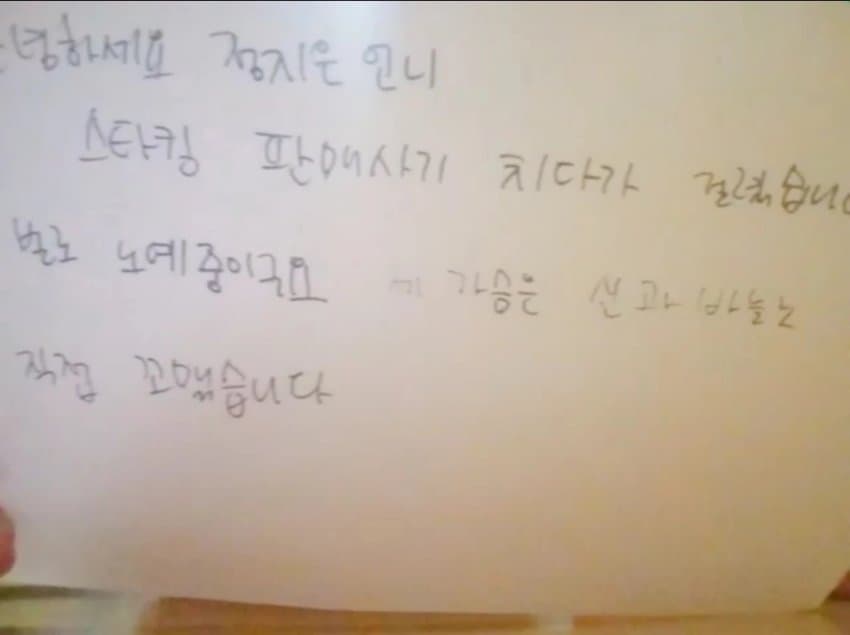 녕하세요 정지은 언니
스타킹 판매사기 치다가 걸렸습니다
벌로 노예중이구요 가슴은 실과 바늘로
직접 꼬맸습니다